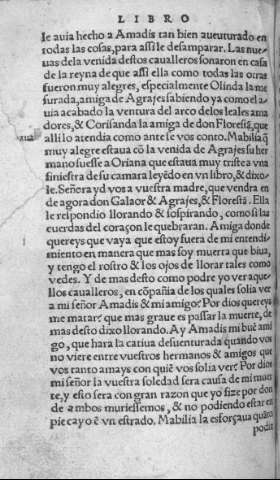 LIBRO
le auia hecho a Amadis tan bien auēturado en
todas las cosas, para assi le desamparar. Las nue-
uas dela venida destos caualleros sonaron en casa
de la reyna de que assi ella como todas las otras
fueron muy alegres, especialmente Olinda la me
surada, amiga de Agrajes sabiendo ya como el a-
uia acabado la ventura del arco delos leales ama
dores, & Corisanda la amiga de don Florestā, que
alli lo atendia como ante se vos conto. Mabilia q̄
muy alegre estaua cō la venida de Agrajes su her
mano fuesse a Oriana que estaua muy triste a vna
finiestra de su camara leyēdo en vn libro, & dixo-
le. Señora yd vos a vuestra madre, que vendra en
de agora don Galaor & Agrajes, & Florestā. Ella
le respondio llorando & sospirando, como si las
cuerdas del coraçon le quebraran. Amiga donde
quereys que vaya que estoy fuera de mi entendi-
miento en manera que mas soy muerta que biua,
y tengo el rostro & los ojos de llorar tales como
vedes. Y de mas desto como podre yo ver aque-
llos caualleros, en cōpañia de los quales solia ver
a mi señor Amadis & mi amigo? Por dios quereys
me matar? que mas graue es passar la muerte, de
mas desto dixo llorando. Ay Amadis mi buē ami
go, que hara la catiua desuenturada quando vos
no viere entre vuestros hermanos & amigos que
vos tanto amays con quiē vos solia ver? Por dios
mi señor la vuestra soledad sera causa de mi muer
te, y esto sera con gran razon que yo fize por don
de ambos muriessemos, & no podiendo estar en
pie cayo ē vn estrado. Mabilia la esforçaua quāto
podia